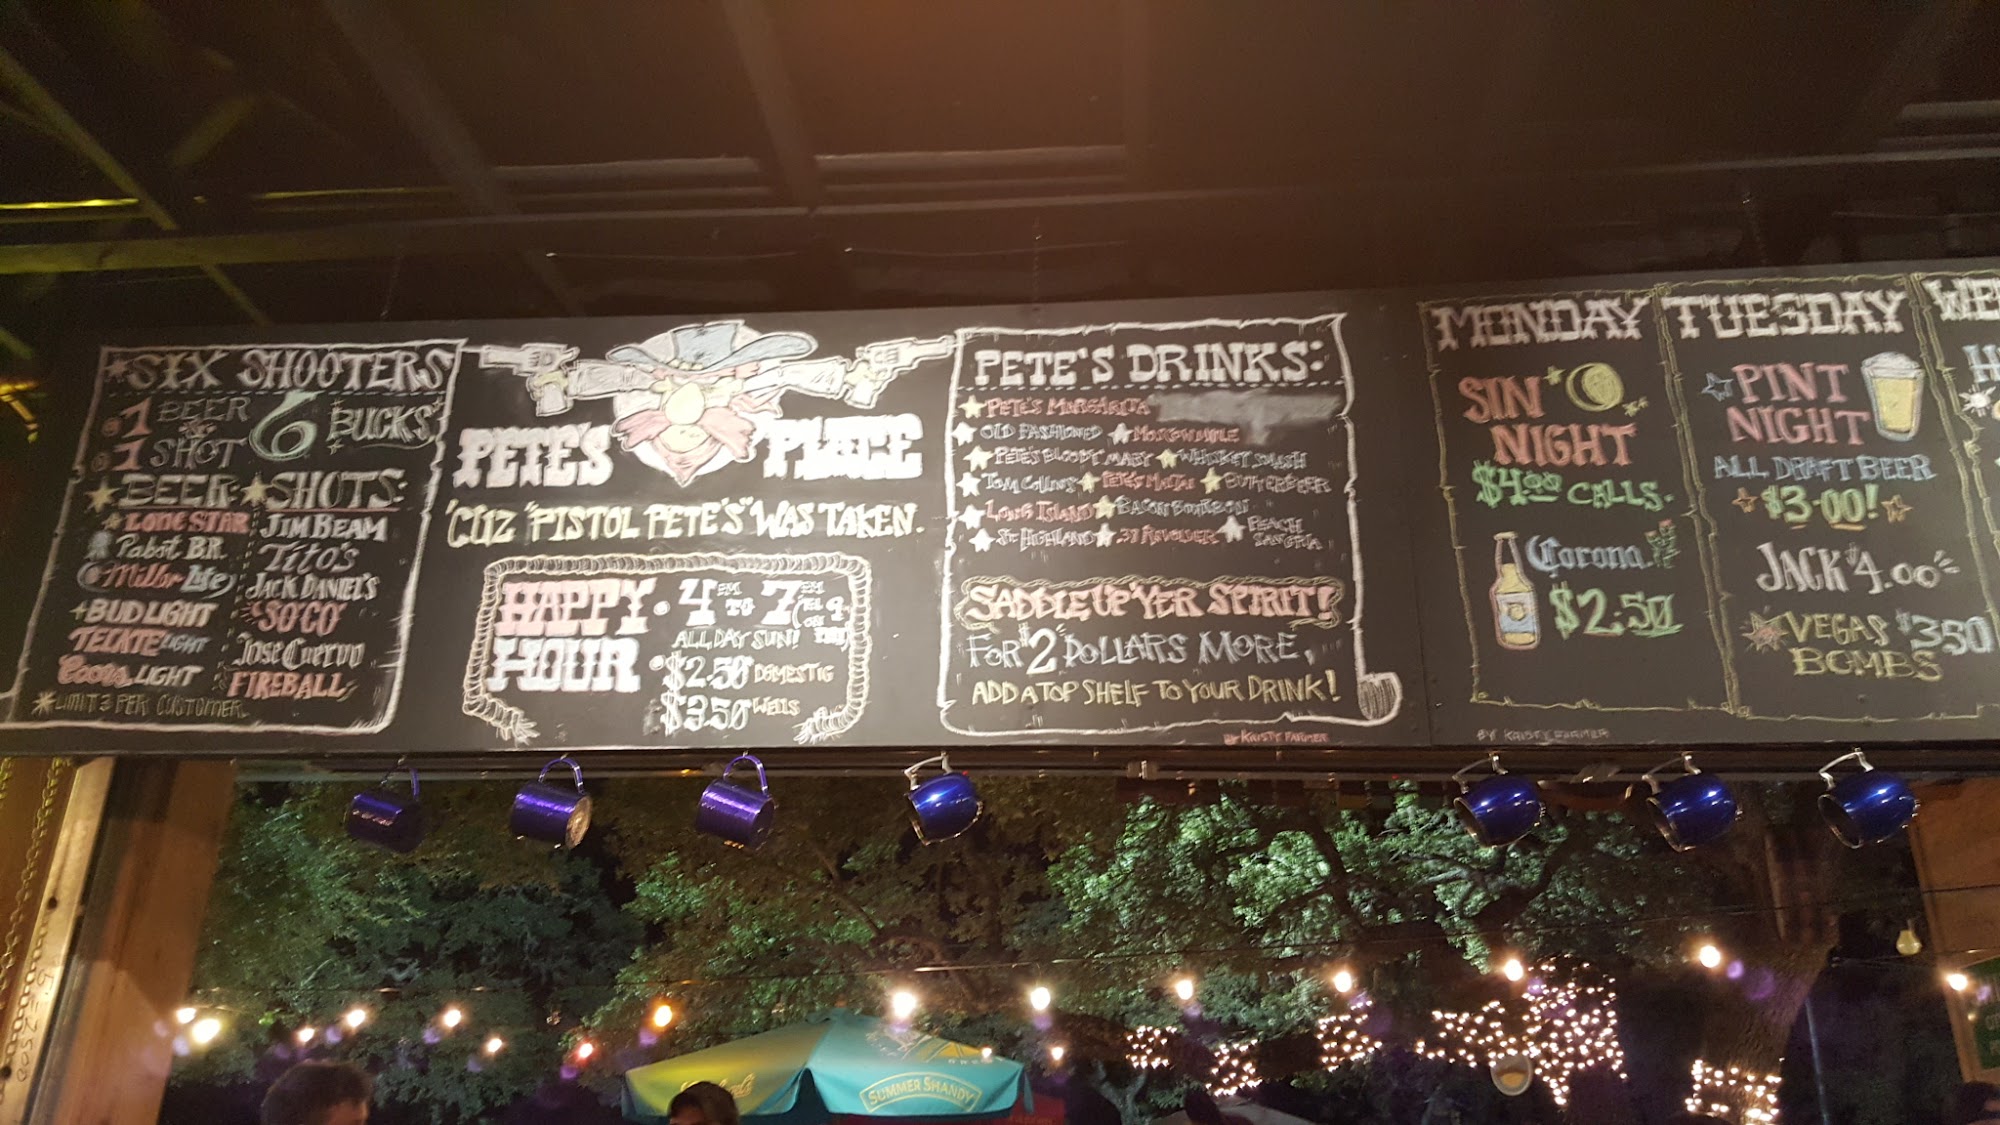 *SIX SHOOTERS
1 BEER
1 SHOT
6 BUCKS
BEER:
LONE STAR
Pabst BR
Miller Lite
+BUD LIGHT
TECATE LIGHT
Coors LIGHT
*LIMIT 3 PER CUSTOMER
SHOTS:
JIM BEAM
Tito's
JACK DANIEL'S
"SO CO"
Jose Cuervo
FIREBALL
PETE'S PLACE
'CUZ "PISTOL PETE'S" WAS TAKEN.
HAPPY HOUR
4 PM TO 7 PM
ALL DAY SUN!
$2.50 DOMESTIC
$3.50 WELLS
PETE'S DRINKS:
PETE'S MARGARITA
OLD FASHIONED MOSCOW MULE
PETE'S BLOODY MARY WHISKEY SMASH
TOM COLLINS PETE'S MAI TAI BUTTERBEER
LONG ISLAND BACON BOURBON
ST HIGHLAND .37 REVOLVER PEACH SANGRIA
SADDLE UP YER SPIRIT!
FOR $2 DOLLARS MORE,
ADD A TOP SHELF TO YOUR DRINK!
BY KRISTY FARMER
MONDAY
SIN
NIGHT
$4.00 CALLS.
Corona
$2.50
BY KRISTY FARMER
TUESDAY
PINT
NIGHT
ALL DRAFT BEER
$3.00!
JACK $4.00
VEGAS BOMBS $3.50
WE
H
SUMMER SHANDY